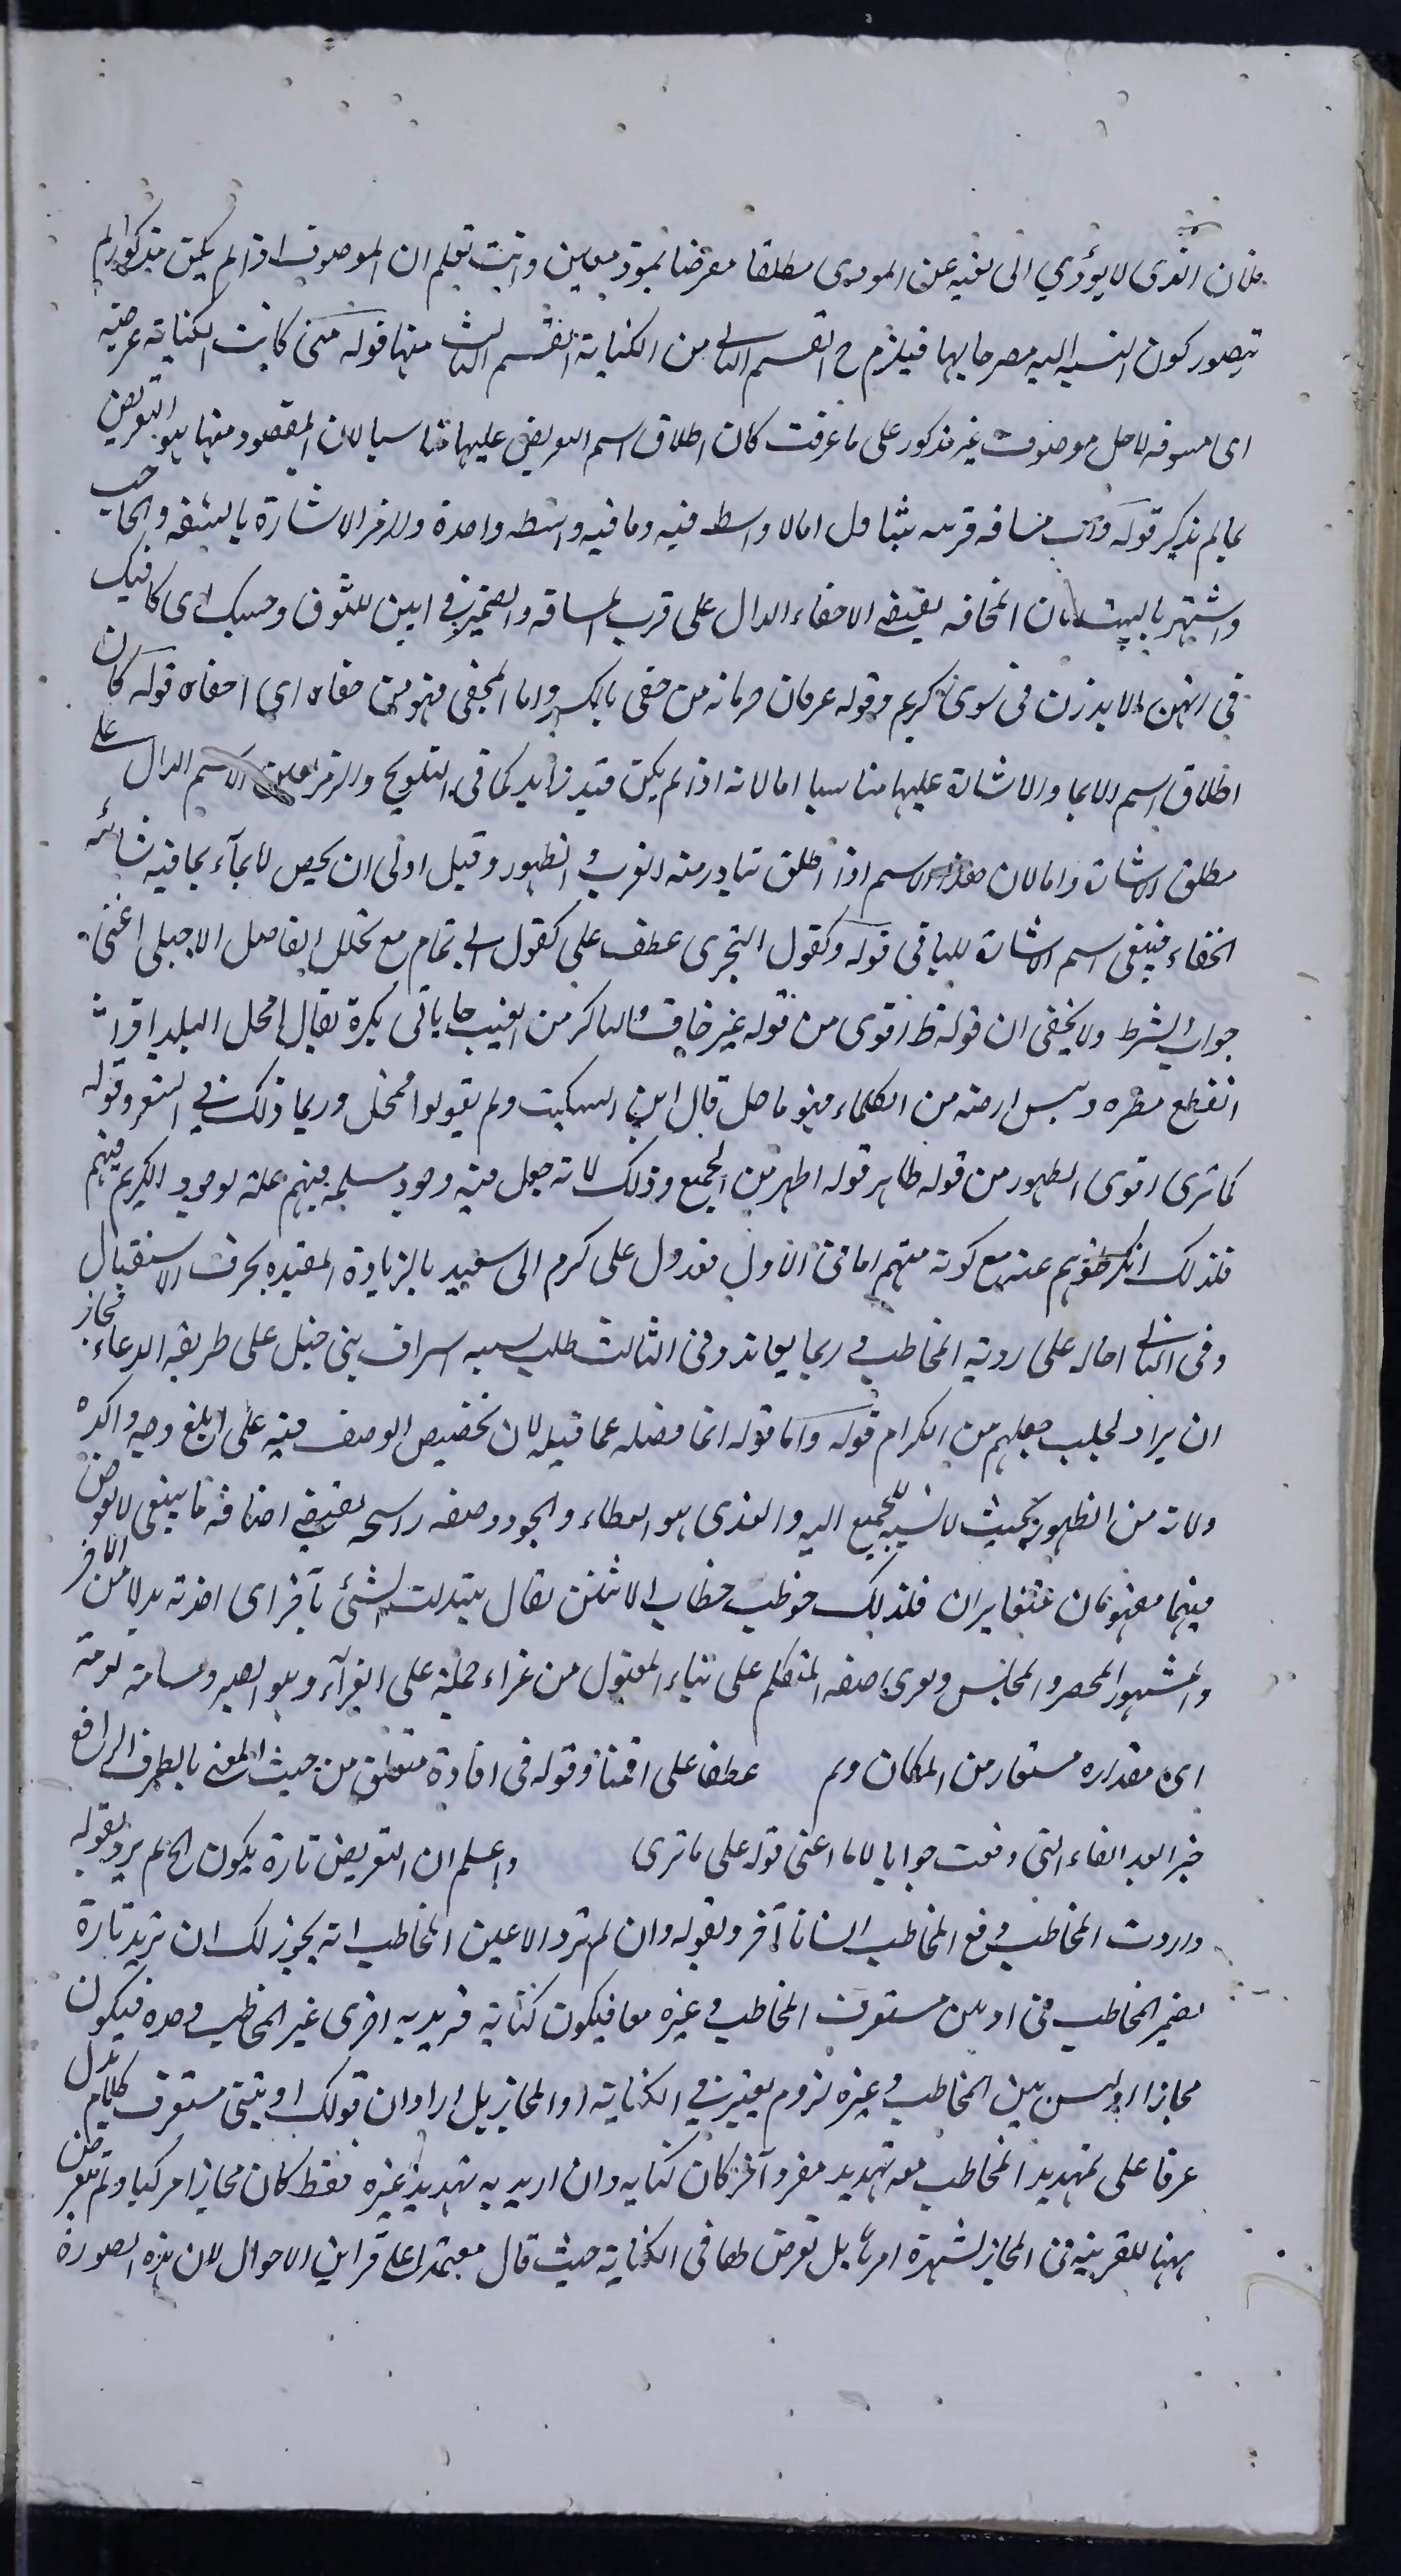 فلان الغرى لا يؤدي الى نفيه عن الموذى مطلقا معرضا بموذ معين وانت تعلم ان الموصوف اذا لم يكن مذكورا لم
يتصور كون النسبة اليه مصرحا بها فيلزم ح القسم الثانى من الكناية القسم الثالث منها قوله متى كانت الكناية عرضية
اى مسوقة لاجل موصوف غير مذكور على ما عرفت كان اطلاق اسم التعريض عليها مناسبا لان المقصود منها هو التعريض
بما لم يذكر قوله مسافة قريبة يتناول اما لا واسطه فيه وما فيه واسطه واحدة والرمز الاشارة بالشفه والحاجب
واشتهر بالبيت بان المخافة يقتضى الاخفاء الدال على قرب المسافه والضمير فى ابين للنوق وحسبك اى كافيك
فى انهن لا يذرن فى سوى كريم وقوله عرفان حرمانه من خفى بالكسر واما المخفى فهو من خفاه اى اخفاه قوله كان
اطلاق اسم الايما والاشارة عليها مناسبا اما لانه اذا لم يكن قيد زايد كما فى التلويح والرمز الاسم الدال على
مطلق الاشارة واما لان هذا الاسم اذا اطلق تبادر منه القرب والظهور وقيل اولى ان يخص الايماء بما فيه شائبه
الخفاء فيبقى اسم الاشارة للباقى قوله وكقول البحترى عطف على كقول ابى تمام مع تخلل الفاصل الاجنبى اعنى
جواب الشرط ولا يخفى ان قوله ظ اقوى من قوله غير خاف والباكر من الغيث ما ياتى بكرة يقال امحل البلد اذا
انقطع مطره ويبس ارضه من الكلاء فهو ماحل قال ابن السكيت ولم يقولوا ممحل وربما ذلك فى الشعر وقوله
كما ترى اقوى الظهور من قوله ظاهر قوله اظهر من الجميع وذلك لانه جعل فيه وجود مسلمة فيهم علة لوجود الكريم فيهم
فلذلك انكر خلوهم عنه مع كونه منهم اما فى الاول فعدول على كرم الى سيفيد بالزيادة المقيده بحرف الاستقبال
وفى الثانى احاله على روية المخاطب وربما يعاند وفى الثالث طلب اسراف بنى حنبل على طريقه الدعاء فجاز
ان يراد لجلب جعلهم من الكرام قوله واما قوله انما فصله عما قبله لان تخصيص الوصف فيه على ابلغ وجه واكده
ولانه من الظهور بحيث لا نسبة للجميع اليه والندى هو العطاء والجود وصفه راسخة يقتضى اضافة ما ينبغى لا لعوض
فيهما مفهومان متغايران فلذلك خوطب خطاب الاثنين يقال تبدلت الشئ بآخر اى اخذته بدلا من الآخر
والمشهور المحصر والمجلس وعرى صفه المتكلم على بناء المفعول من عزاء حمله على العزآء وهو الصبر ومسامة يومه
اى مقداره مستعار من المكان ولم عطفا على اقمنا وقوله فى افادة متعلق من حيث المعنى بالظرف الرافع
خبرا لبعد الفاء التى وقعت جوابا لاما اعنى قوله على ما ترى واعلم ان التعريض تارة يكون الخ لم يرد بقوله
واردت المخاطب ومع المخاطب انسانا آخر وبقوله وان لم ترد الا عين المخاطب انه يجوز لك ان تريد تارة
بضمير المخاطب فى اذيتنى فستعرف المخاطب وغيره معا فيكون كناية وتريد به اخرى غير المخاطب وحده فيكون
مجازا اذ ليس بين المخاطب وغيره لزوم يعتبر فى الكناية او المجاز بل اراد ان قولك اذيتنى فستعرف كلام يدل
عرفا على تهديد المخاطب معه تهديد مفرد آخر كان كناية وان اريد به تهديد غيره فقط كان مجازا مركبا ولم يتعرض
ههنا للقرينة فى المجاز لشهرة امرها بل تعرض لها فى الكناية حيث قال معتمدا على قراين الاحوال لان هذه الصورة